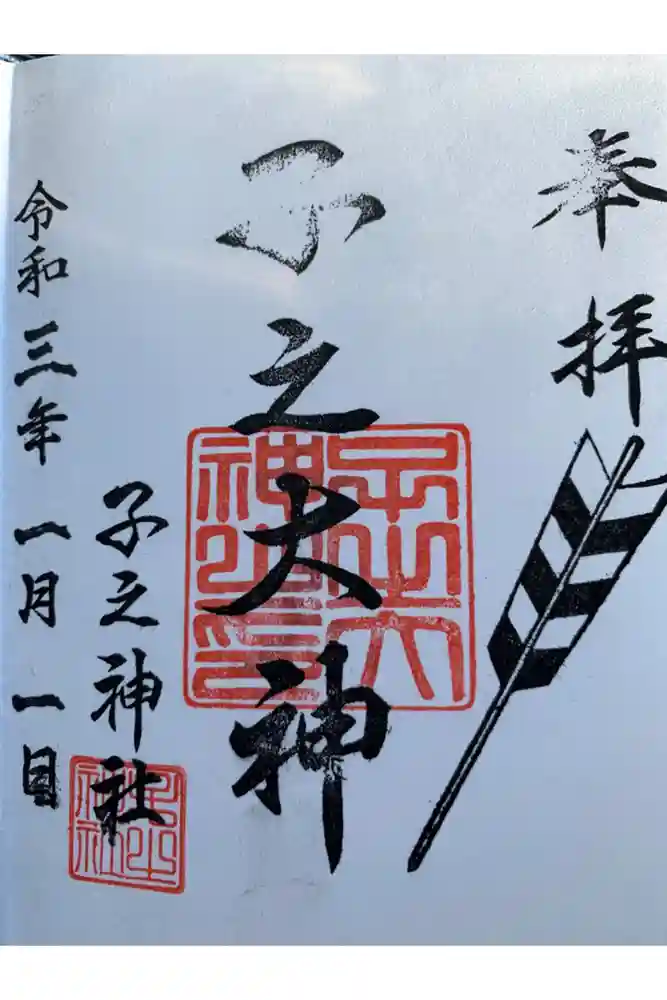 奉拝
子之大神
子之大神之印
子之神社
子之神社
令和三年一月一日